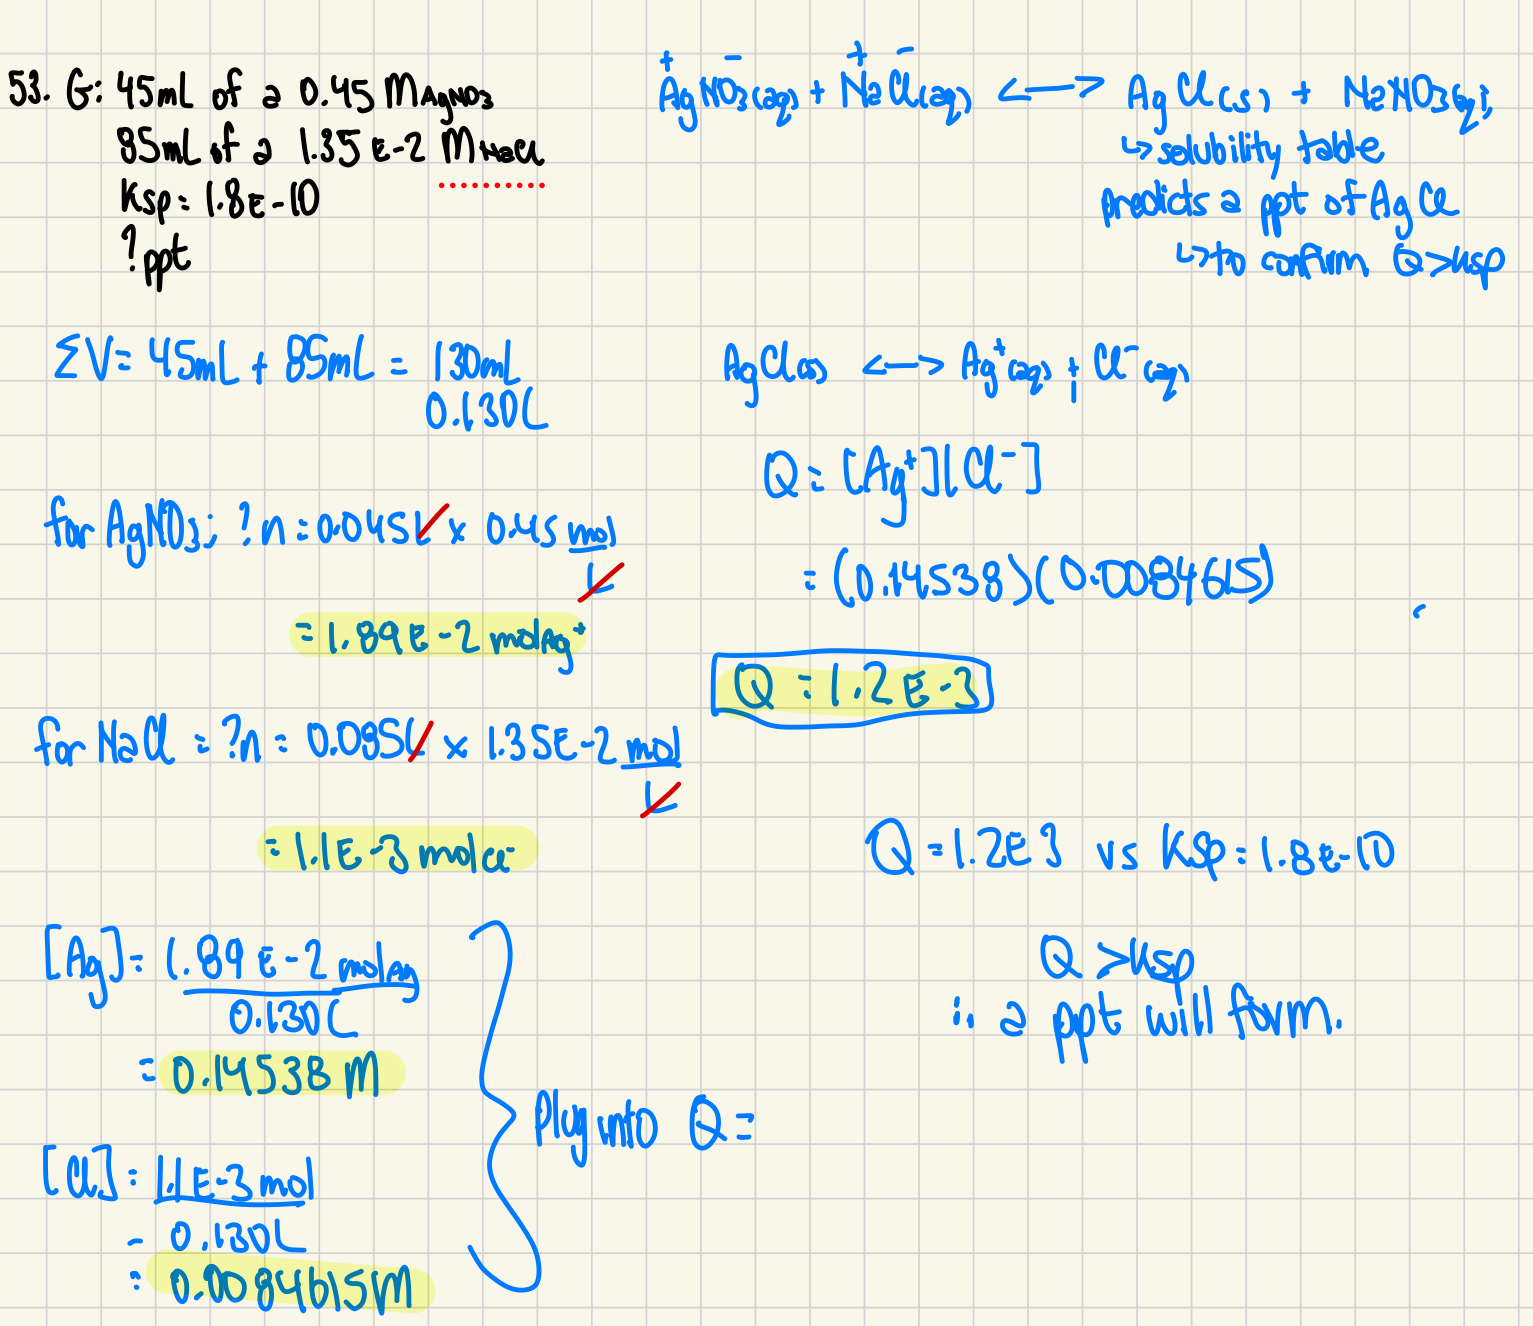 53. G: 45mL of a 0.45 M AgNO3
85mL of a 1.35 E-2 M NaCl
Ksp = 1.8E-10
? ppt
+ - + -
AgNO3(aq) + NaCl(aq) <-> AgCl(s) + NaNO3(aq)
↳ solubility table
predicts a ppt of AgCl
↳ to confirm Q>Ksp
ΣV = 45mL + 85mL = 130mL
0.130L
for AgNO3; ?n = 0.045L x 0.45 mol
L
= 1.89E-2 mol Ag+
for NaCl = ?n = 0.085L x 1.35E-2 mol
L
= 1.1E-3 mol Cl-
[Ag] = 1.89 E-2 mol Ag
0.130L
= 0.14538 M
[Cl] = 1.1E-3 mol
- 0.130L
= 0.0084615M
Plug into Q =
AgCl(s) <-> Ag+(aq) + Cl-(aq)
Q = [Ag+][Cl-]
= (0.14538)(0.0084615)
Q = 1.2E-3
Q = 1.2E3 vs Ksp = 1.8E-10
Q >Ksp
∴ a ppt will form.